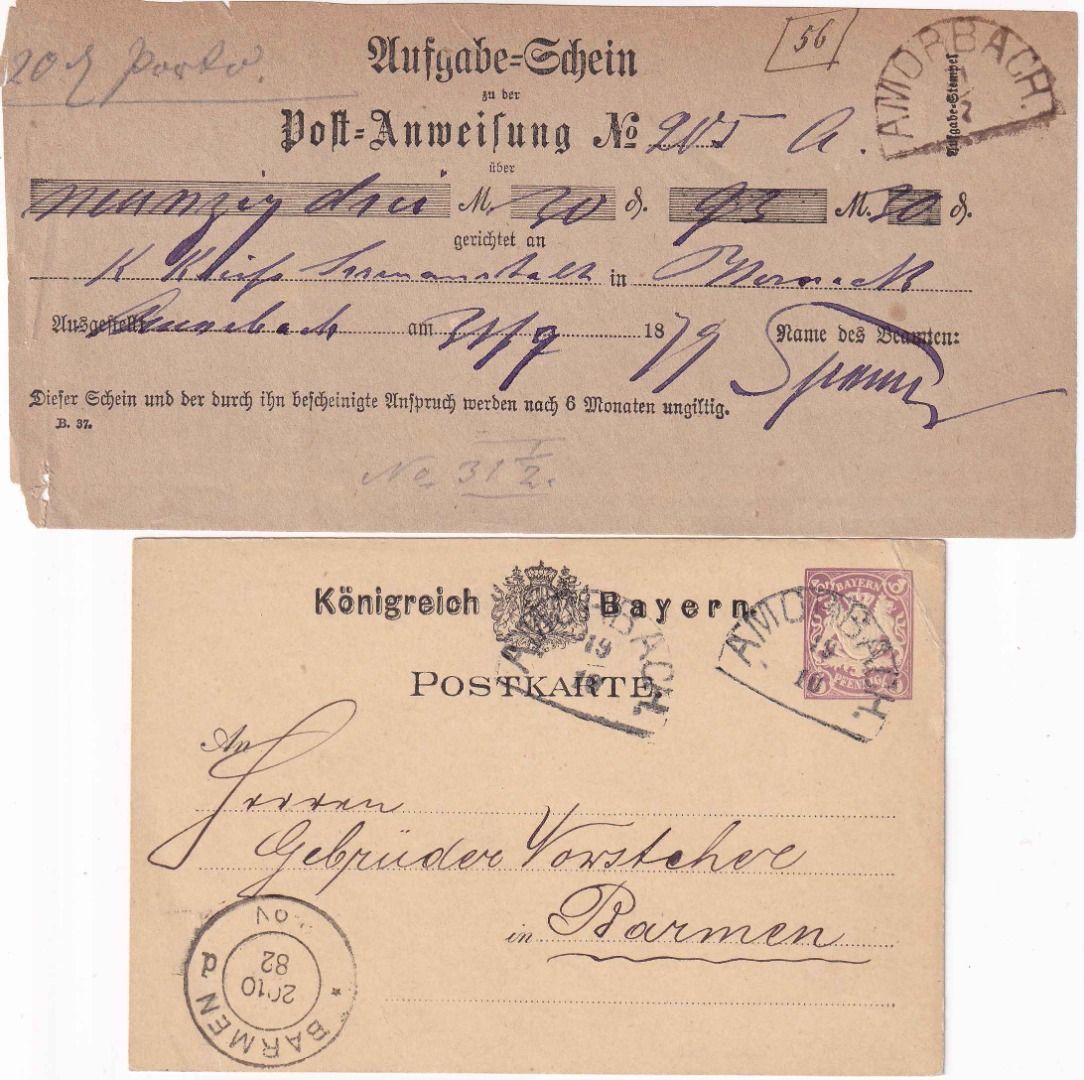 20 ₰ Porto.
56
AMORBACH.
Aufgabe=Schein
zu der
Aufgabe-Stempel
Post=Anweisung No 205 A.
über
neunzig drei M. 30 ₰. 93 M. 30 ₰.
gerichtet an
K Kreis Irrenanstalt in Werneck
Ausgestellt am 1879 Name des Beamten:
Dieser Schein und der durch ihn bescheinigte Anspruch werden nach 6 Monaten ungiltig.
B. 37.
No 31 1/2.
Königreich Bayern.
BAYERN
PFENNIG
AMORBACH.
19
10
AMORBACH.
19
10
POSTKARTE.
An
Herren
Gebrüder Vorsteher
in Barmen
BARMEN p
20 10
82